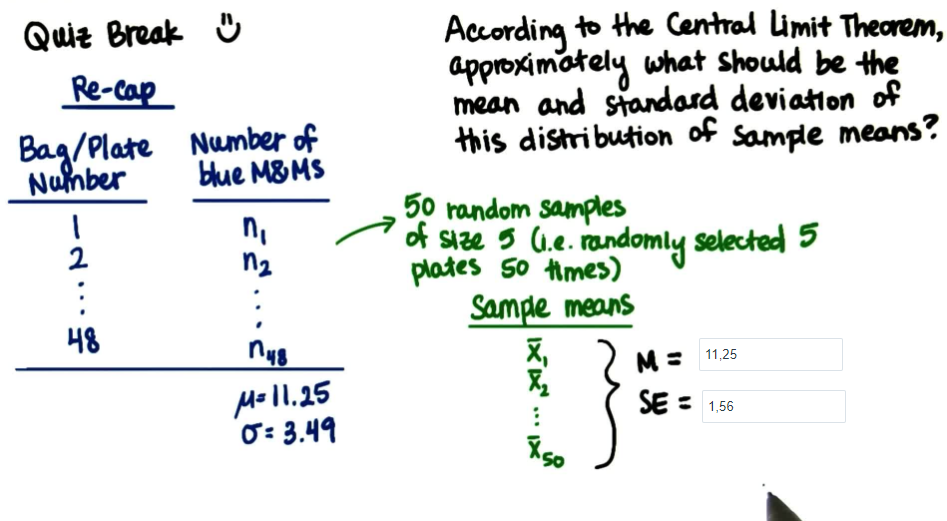 Quiz Break
Re-cap
Bag/Plate Number
Number of blue M&Ms
1 n₁
2 n₂
⋮ ⋮
48 n₄₈
μ=11.25
σ=3.49
According to the Central Limit Theorem,
approximately what should be the
mean and standard deviation of
this distribution of sample means?
50 random samples
of size 5 (i.e. randomly selected 5
plates 50 times)
Sample means
x̄₁
x̄₂
⋮
x̄₅₀
M = 11,25
SE = 1,56